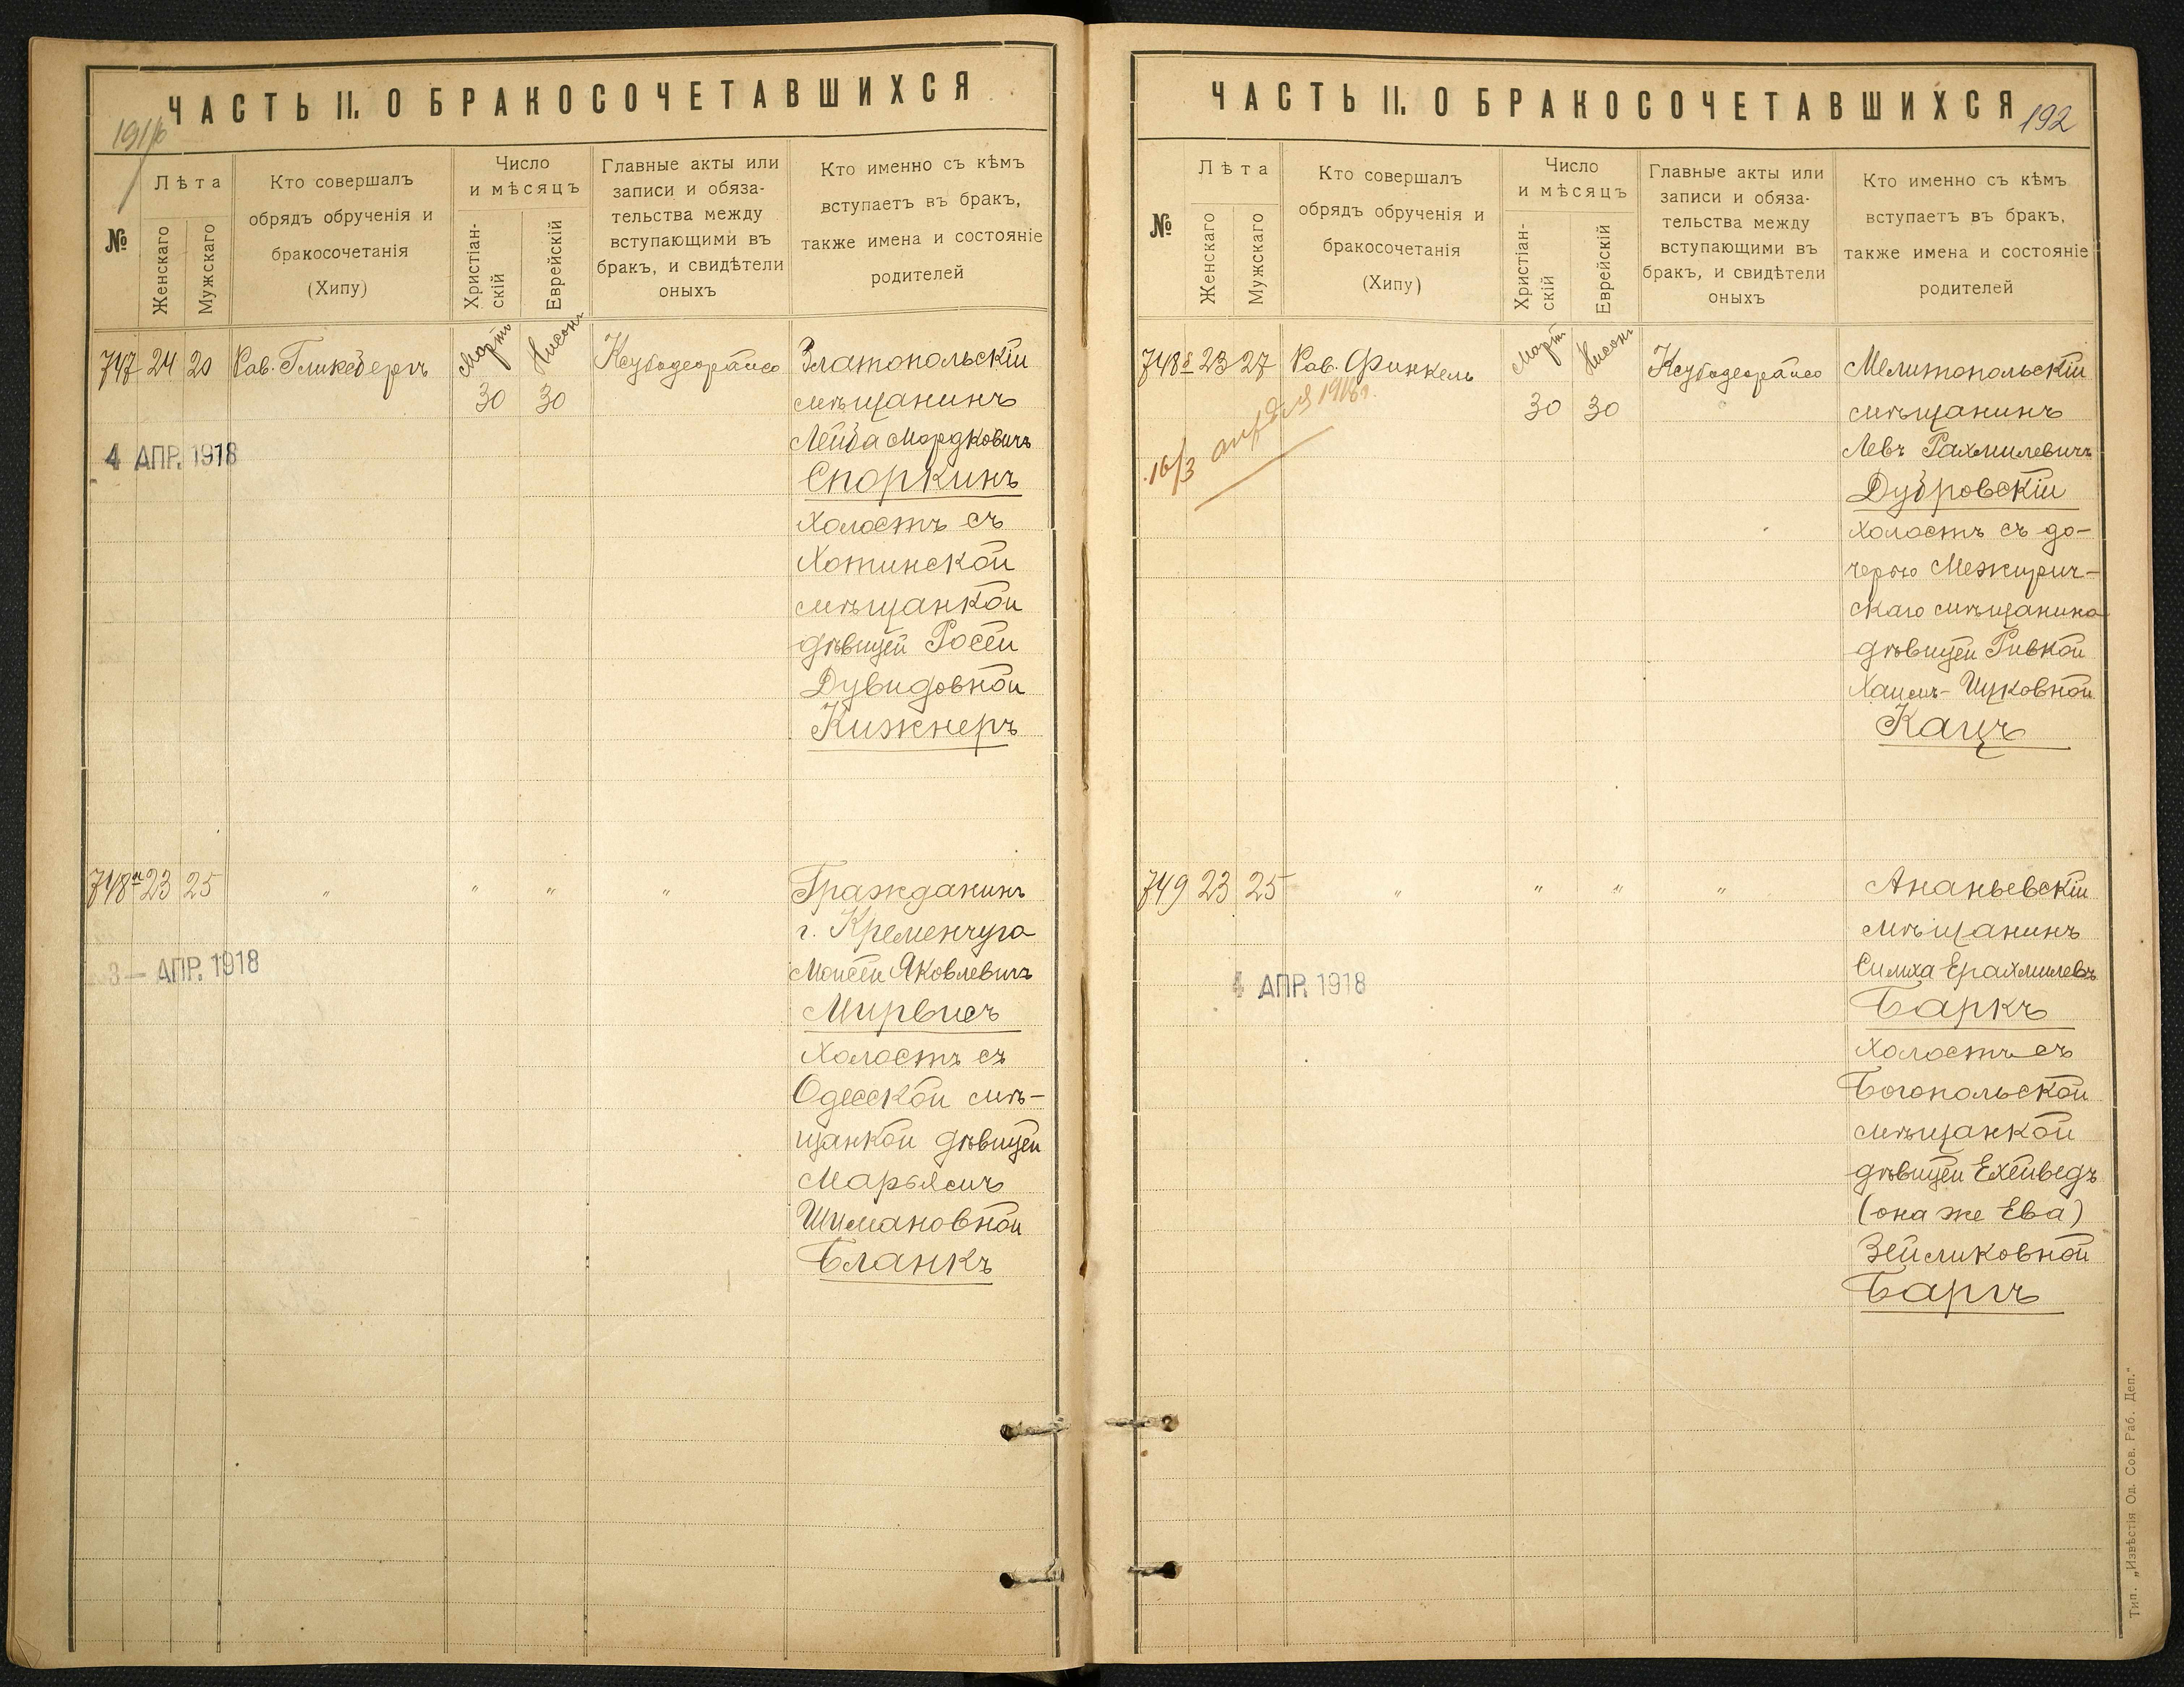 ЧАСТЬ II. О БРАКОСОЧЕТАВШИХСЯ
№
Лѣта
Женскаго
Мужскаго
Кто совершалъ
обрядъ обрученія и
бракосочетанія
(Хипу)
Число
и мѣсяцъ
Христіан-
скій
Еврейскій
Главные акты или
записи и обяза-
тельства между
вступающими въ
бракъ, и свидѣтели
оныхъ
Кто именно съ кѣмъ
вступаетъ въ бракъ,
также имена и состояніе
родителей
747 24 20 Рав. Гликсбергъ
Мартъ
30
Нисонъ
30
4 АПР. 1918
Златопольскій
мѣщанинъ
Лейба Мордковичъ
Споркинъ
холостъ съ
Хотинской
мѣщанкой
дѣвицей Росей
Дувидовной
Кижнеръ
748а 23 25 " " " "
3 — АПР. 1918
Гражданинъ
г. Кременчуга
Моисей Яковлевичъ
Мирвисъ
холостъ съ
Одесской мѣ-
щанкой дѣвицей
Марьясъ
Шимановной
Бланкъ
ЧАСТЬ II. О БРАКОСОЧЕТАВШИХСЯ
192
№
Лѣта
Женскаго
Мужскаго
Кто совершалъ
обрядъ обрученія и
бракосочетанія
(Хипу)
Число
и мѣсяцъ
Христіан-
скій
Еврейскій
Главные акты или
записи и обяза-
тельства между
вступающими въ
бракъ, и свидѣтели
оныхъ
Кто именно съ кѣмъ
вступаетъ въ бракъ,
также имена и состояніе
родителей
748б 23 27 Рав. Финкель
Мартъ
30
Нисонъ
30
16/3 апрѣля
Мелитопольскій
мѣщанинъ
Левъ Рахмилевичъ
Дубровскій
холостъ съ до-
черью Межирич-
скаго мѣщанина
дѣвицей Ривкой
Хаимъ-Ицковной
Кацъ
749 23 25 " " " "
4 АПР. 1918
Ананьевскій
мѣщанинъ
Симха Ерахмилевъ
Баркъ
холостъ съ
Богопольской
мѣщанкой
дѣвицей Ехейведъ
(она же Ева)
Зейликовной
Баргъ
Тип. „Извѣстія Од. Сов. Раб. Деп."